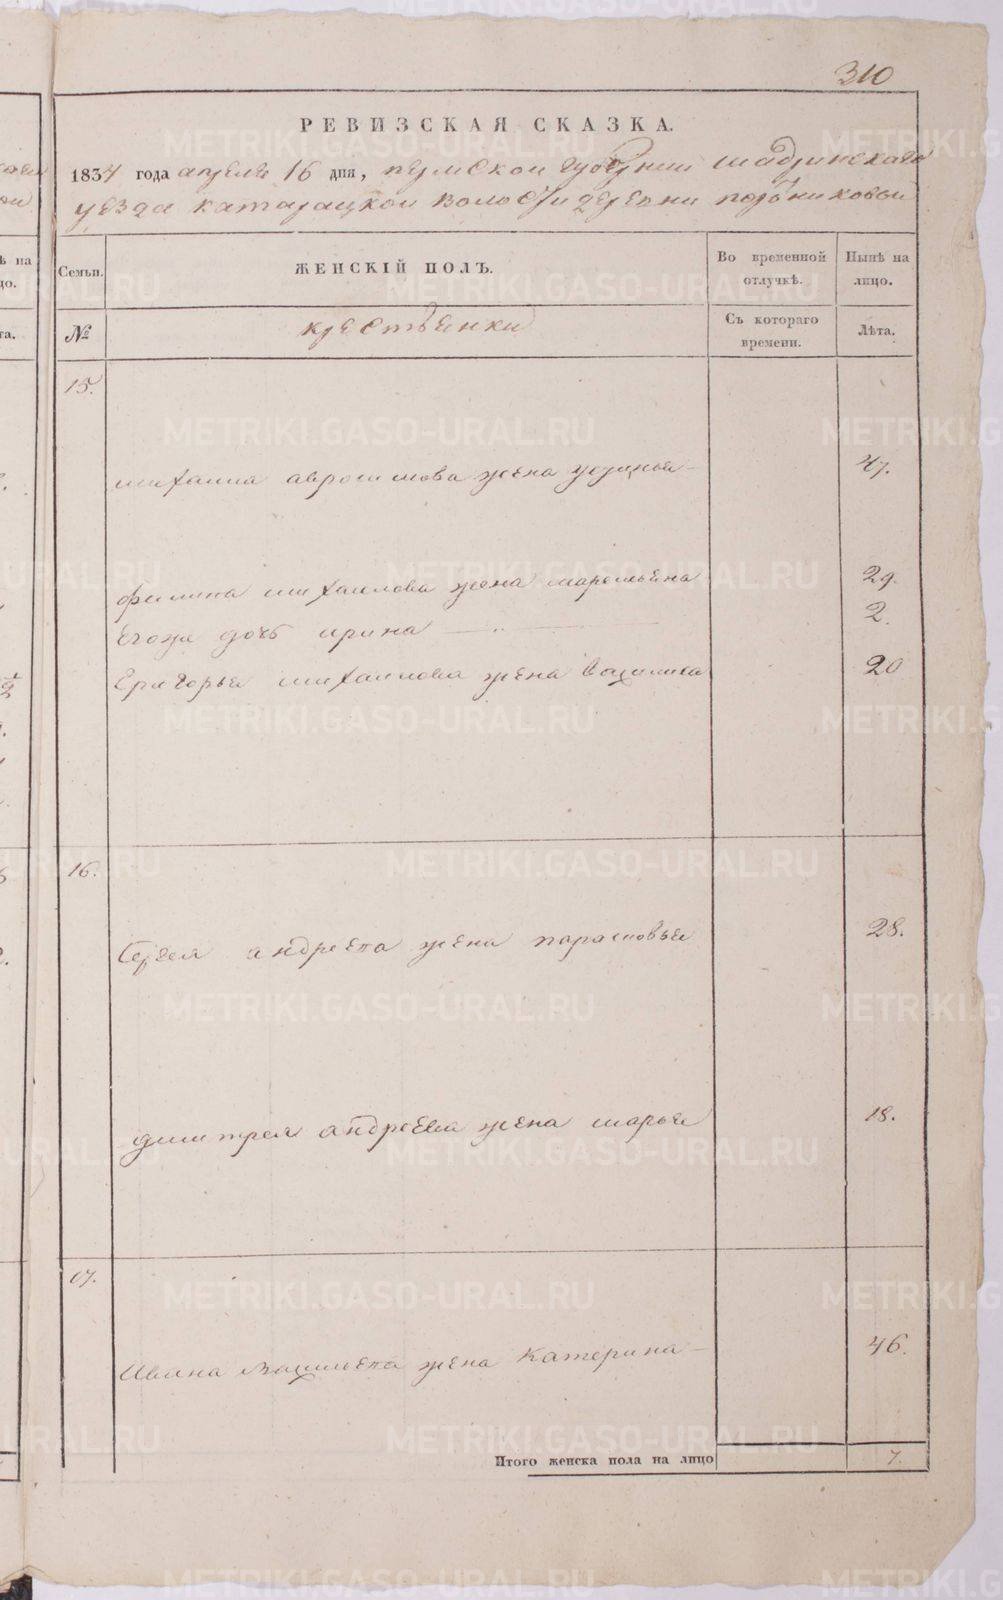 310
РЕВИЗСКАЯ СКАЗКА.
1834 года апреля 16 дня, пермской губернии шадринскаго
уезда катайцкой волости деревни
Семьи. ЖЕНСКІЙ ПОЛЪ. Во временной отлучкѣ. Нынѣ на лицо.
№ крестьенки Съ котораго времени. Лѣта.
15.
михаила авросимова жена 47.
филипа михаилова жена маремьяна 29.
Егоже дочь ирина 2.
Григорья михаилова жена Василиса 20
16.
Сергея андреева жена парасковья 28.
дмитрея андреева жена марья 18.
17.
Ивана Васильева жена Катерина 46.
Итого женска пола на лицо 7.
METRIKI.GASO-URAL.RU